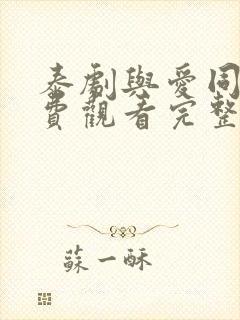 泰劇與愛同
費觀看完整
蘇一酥